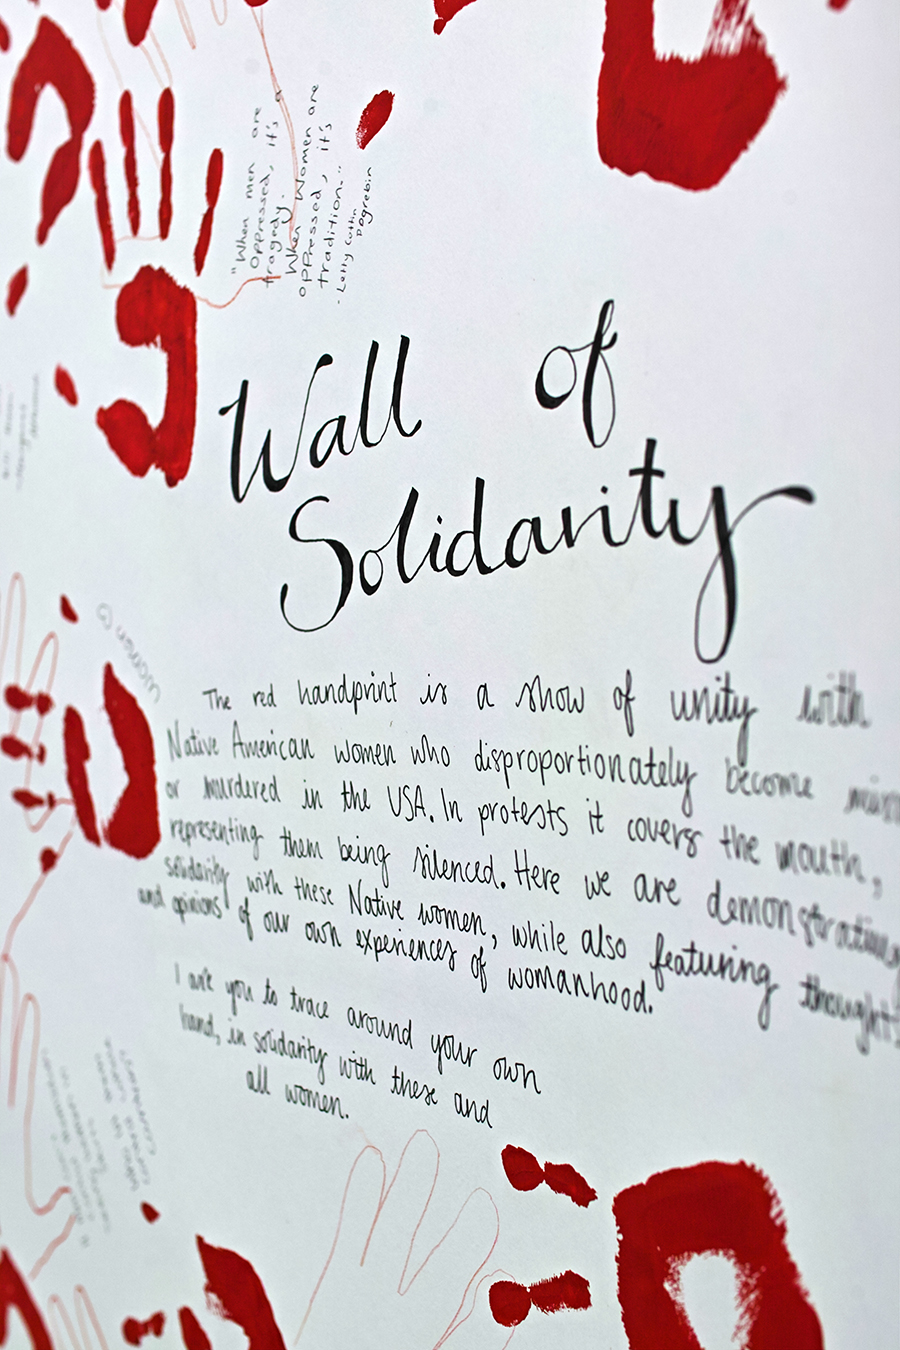 "When men are
oppressed, it's a
tragedy.
When Women are
oppressed, it's
tradition."
- Letty Cottin
Pogrebin
Wall of
Solidarity
The red handprint is a show of unity with
Native American women who disproportionately become
or murdered in the USA. In protests it covers the mouth,
representing them being silenced. Here we are demonstrating
solidarity with these Native women, while also featuring thoughts
and opinions of our own experiences of womanhood.
I ask you to trace around your own
hand, in solidarity with these and
all women.